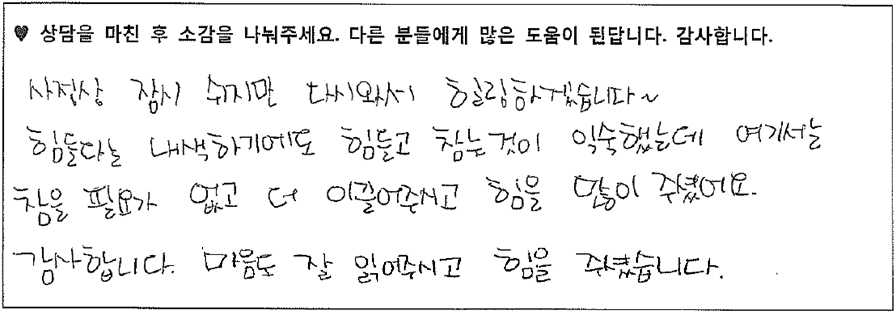 ♥ 상담을 마친 후 소감을 나눠주세요. 다른 분들에게 많은 도움이 된답니다. 감사합니다.
사정상 잠시 쉬지만 다시와서 힐링하겠습니다~
힘들다는 내색하기에도 힘들고 참는것이 익숙했는데 여기서는
참을 필요가 없고 더 이끌어주시고 힘을 많이 주셨어요.
감사합니다. 마음도 잘 읽어주시고 힘을 주셨습니다.